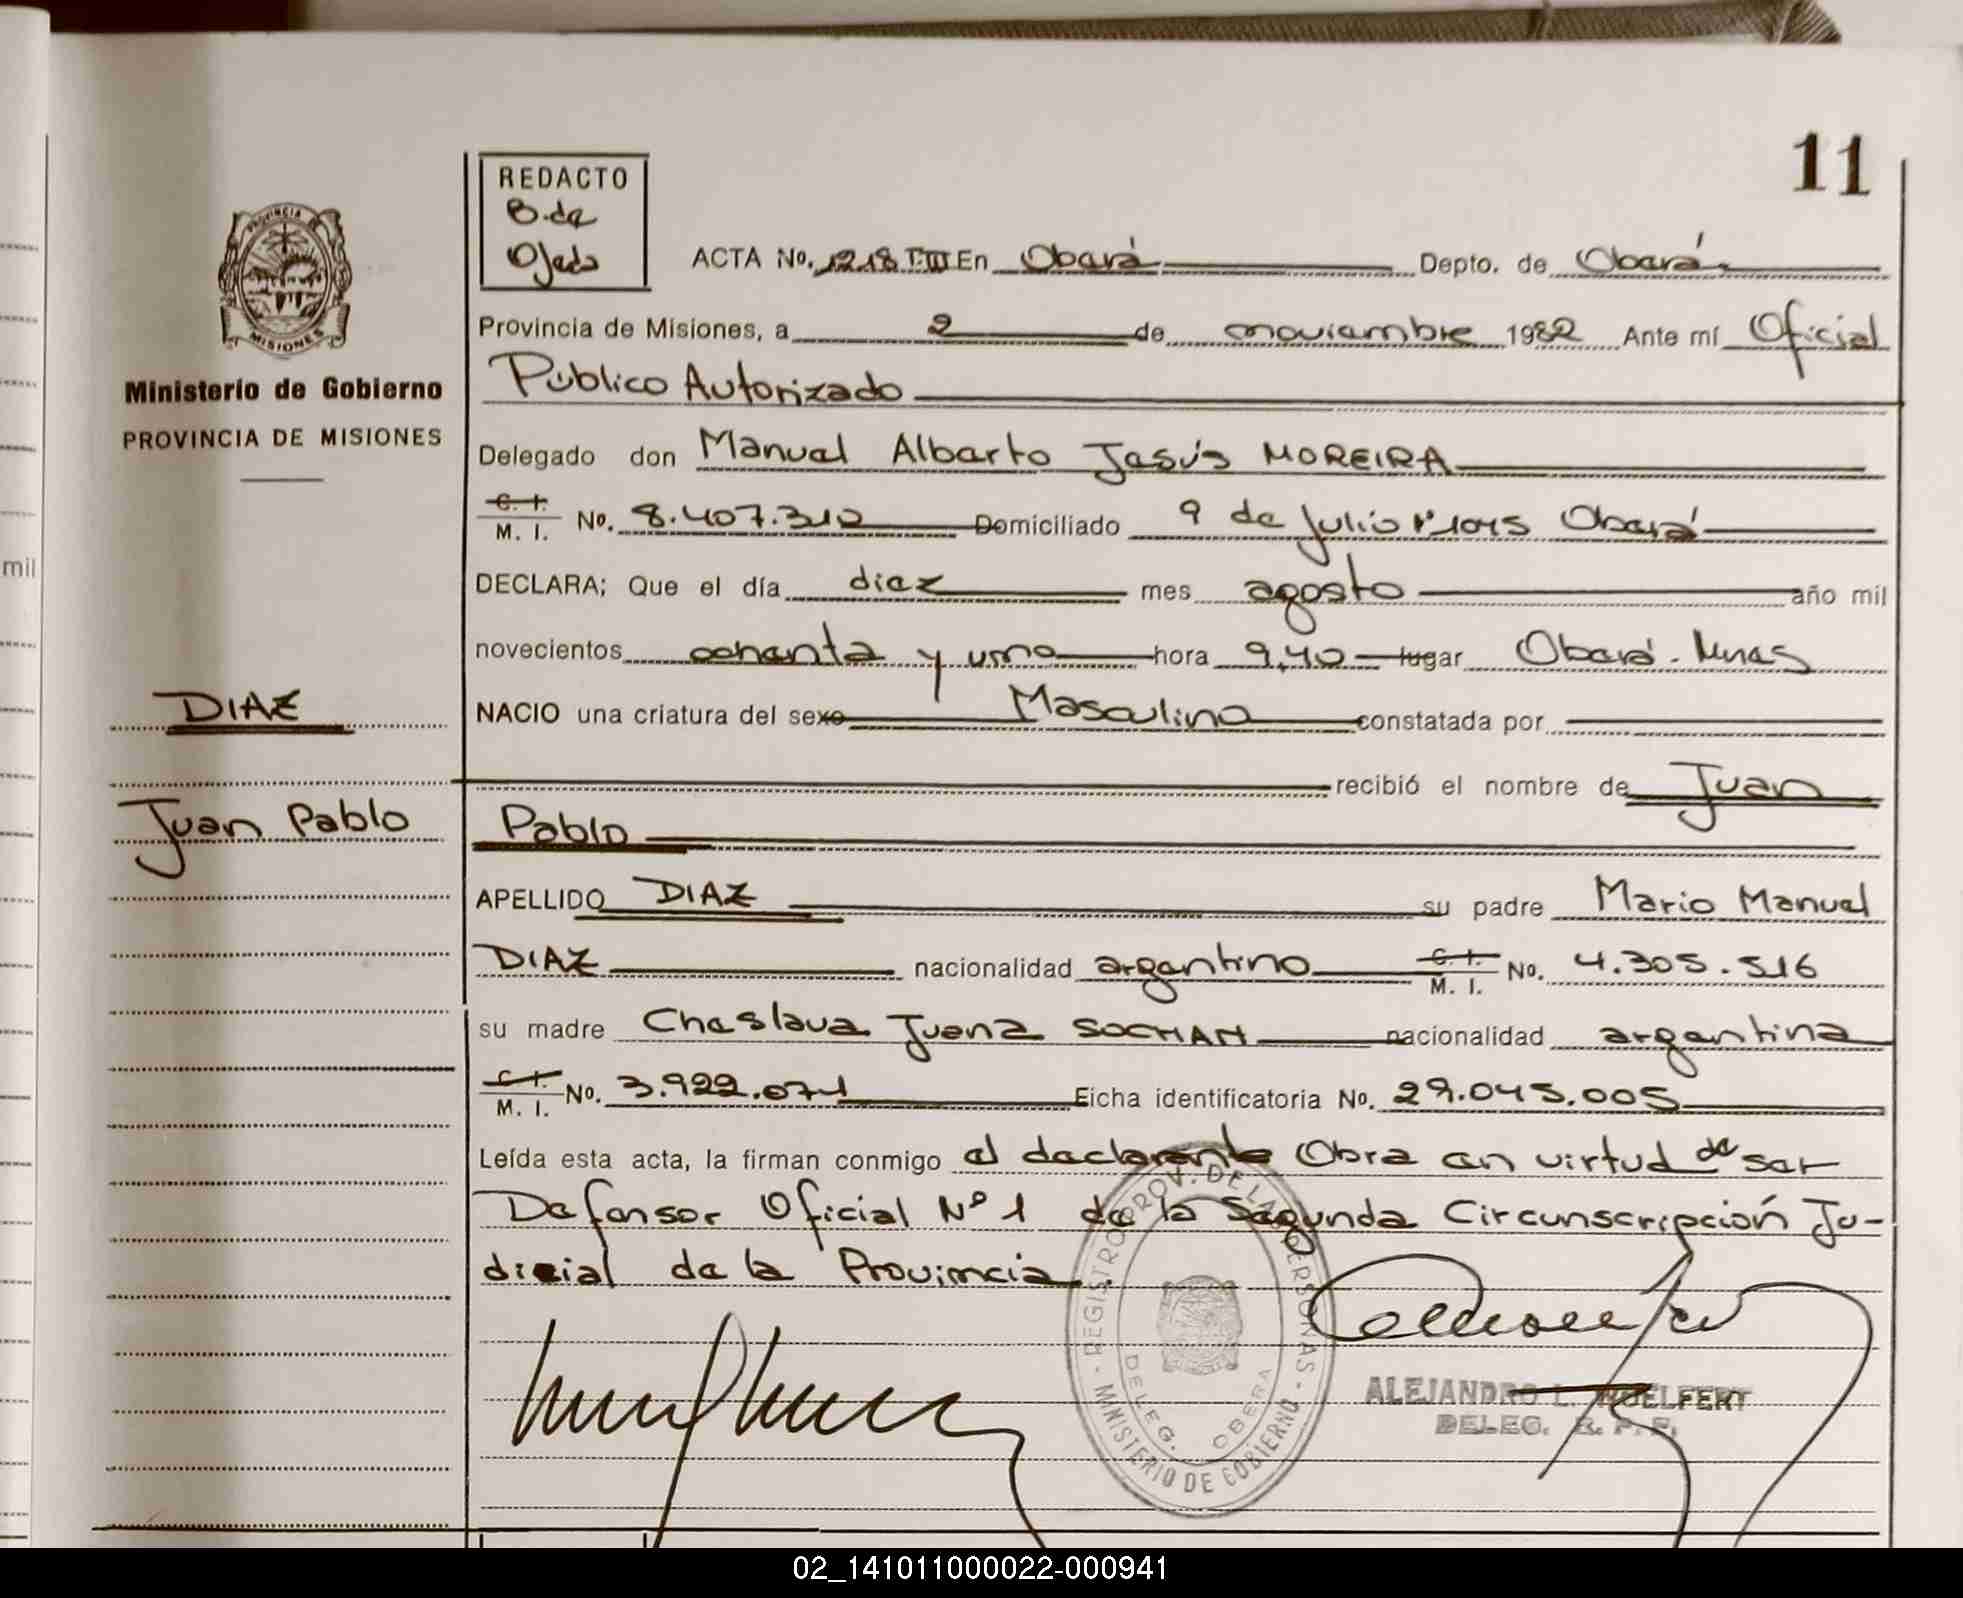 11
REDACTO
B. de
Ojeda
ACTA No. 1218 T.III En Oberá Depto. de Oberá
Provincia de Misiones, a 2 de noviembre 1982 Ante mí Oficial
Público Autorizado
Delegado don Manuel Alberto Jesús MOREIRA
C. I.
M. I. No. 8.407.312 Domiciliado 9 de Julio Nº 1045 Oberá
DECLARA; Que el día diez mes agosto año mil
novecientos ochenta y uno hora 9,40 lugar Oberá - Mnes
NACIO una criatura del sexo Masculino constatada por
recibió el nombre de Juan
Pablo
APELLIDO DIAZ su padre Mario Manuel
DIAZ nacionalidad argentino C. I. M. I. No. 4.305.516
su madre Cheslava Juana SOCHAN nacionalidad argentina
C. I.
M. I. No. 3.922.071 Ficha identificatoria No. 29.045.005
Leída esta acta, la firman conmigo el declarante Obra en virtud de ser
Defensor Oficial Nº 1 de la Segunda Circunscripción Ju-
dicial de la Provincia.
PROVINCIA
MISIONES
Ministerio de Gobierno
PROVINCIA DE MISIONES
DIAZ
Juan Pablo
mil
REGISTRO PROV. DE LAS PERSONAS
DELEG. OBERA
MINISTERIO DE GOBIERNO
ALEJANDRO L. RUELFERT
DELEG. R. P. P.
02_141011000022-000941